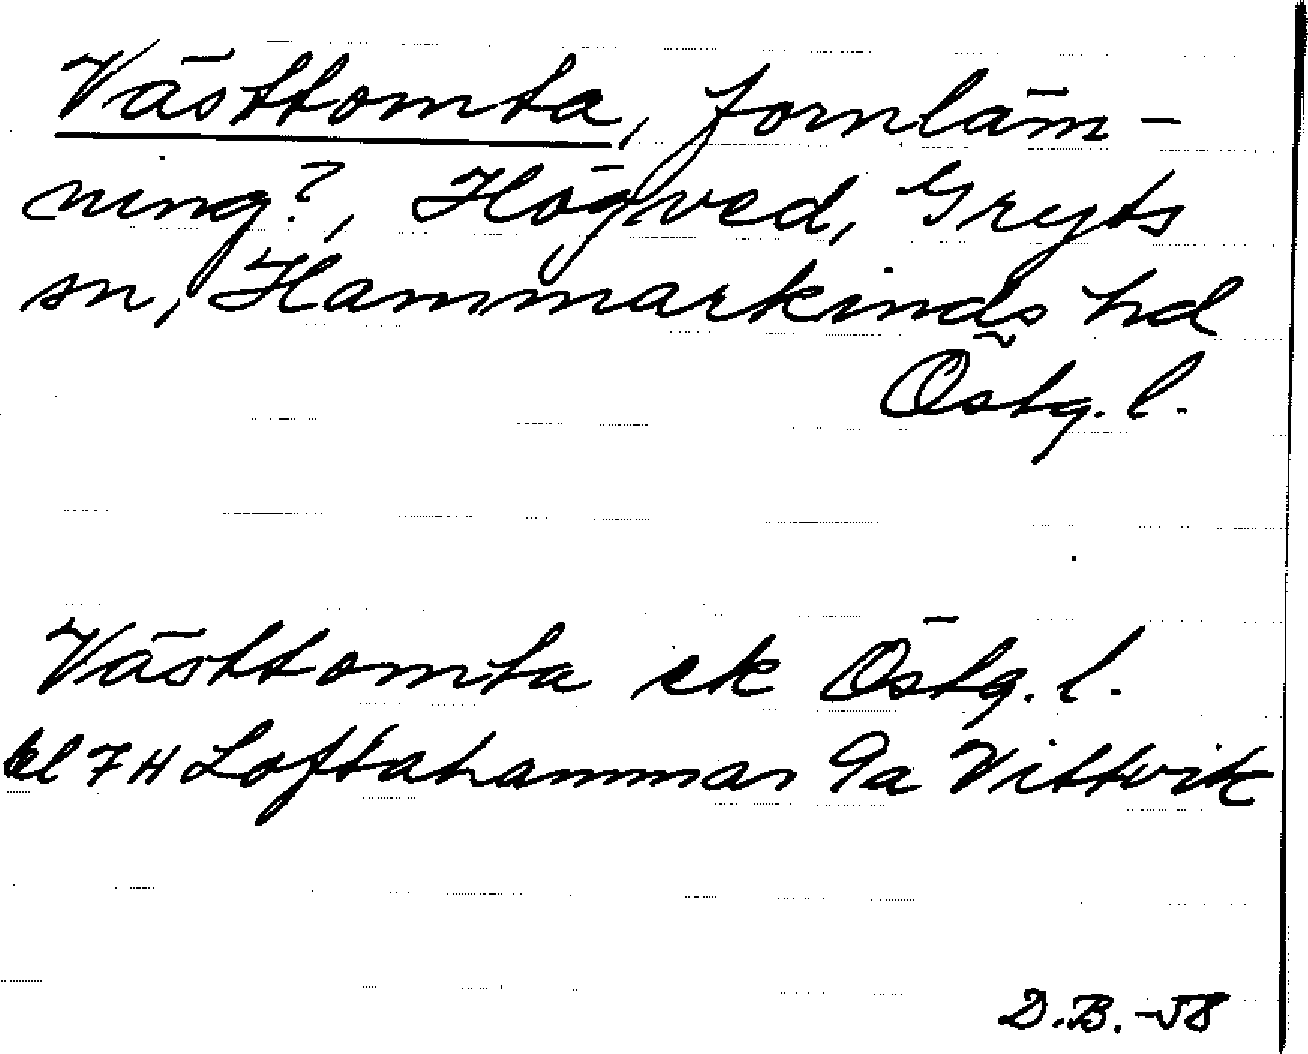 Västtomta, fornläm-
ning?, Högved, Gryts
sn, Hammarkinds hd
Östg. l.
Västtomta ek Östg. l.
bl 7 H Loftahammar 9a Vittvik
D.B. -58